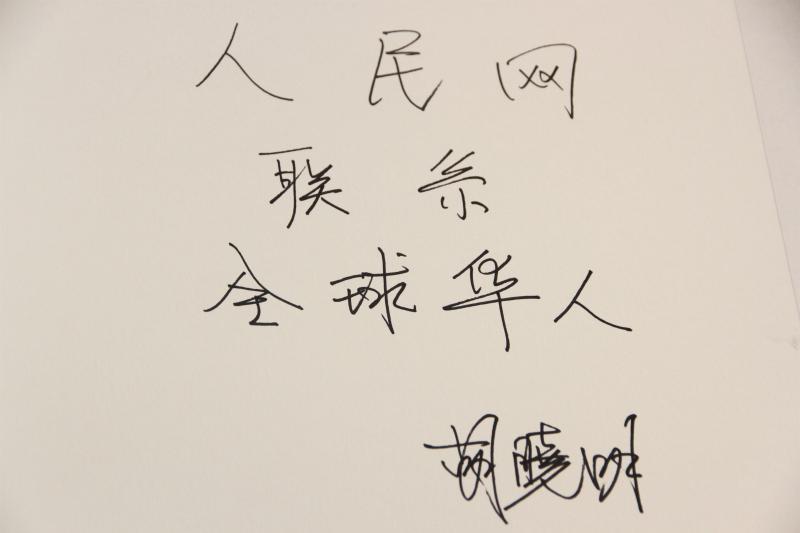 人民网
联系
全球华人
胡晓明